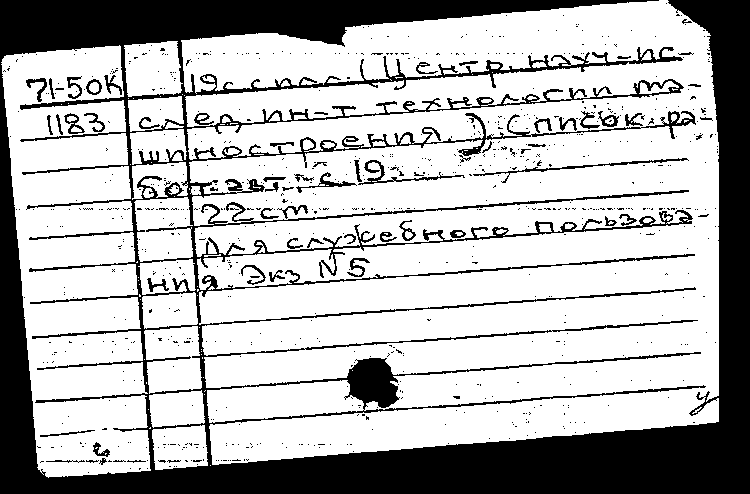 71-50К 19с. с илл. (Центр. науч-ис-
1183 след. ин-т технологии ма-
шиностроения.) Список ра-
бот авт.: с. 19.
22 см.
Для служебного пользова-
ния. Экз. N 5.
у